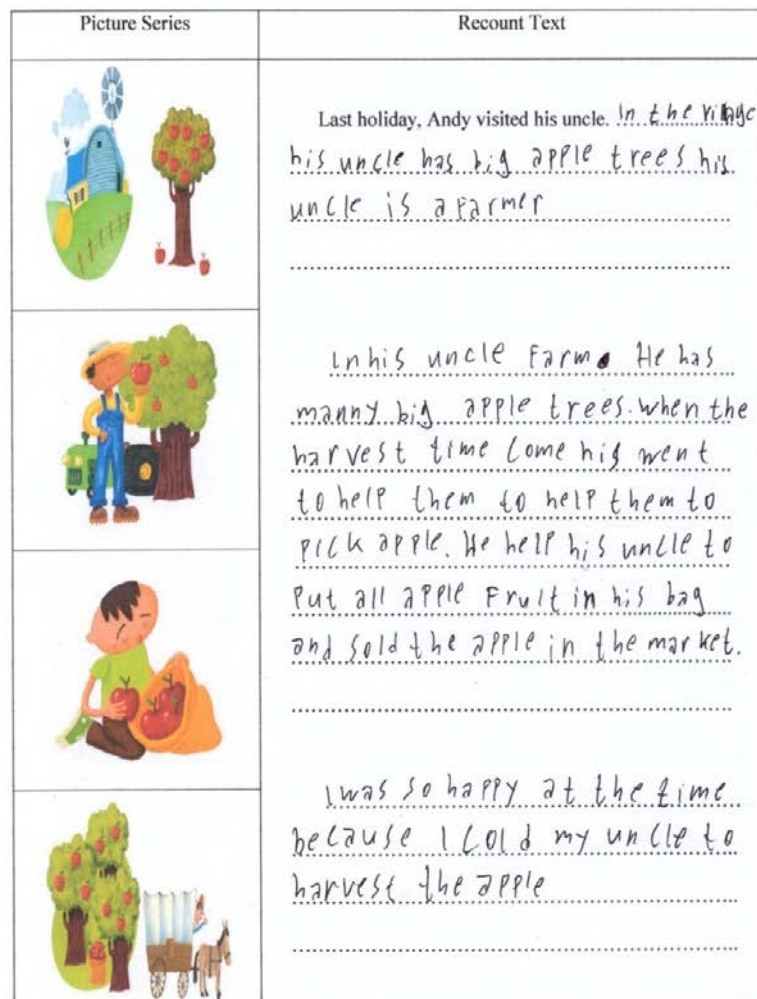 Picture Series
Recount Text
Last holiday, Andy visited his uncle. In the village
his uncle has big apple trees his
uncle is a farmer
In his uncle Farm. He has
manny big apple trees. When the
harvest time come his went
to help them to help them to
Pick apple. He help his uncle to
Put all apple Fruit in his bag
and sold the apple in the market.
I was so happy at the time
because I cold my uncle to
harvest the apple